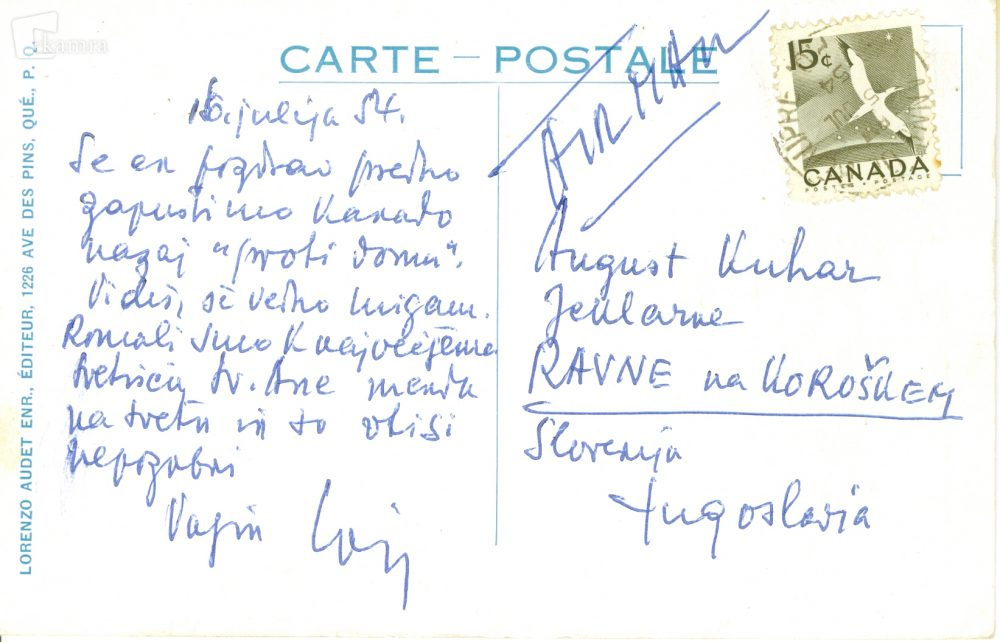 kamra
CARTE – POSTALE
AIR MAIL
15¢
CANADA
POSTES • POSTAGE
LORENZO AUDET ENR., ÉDITEUR, 1226 AVE DES PINS, QUÉ., P. Q.
julija 54.
Še en pozdrav predno
zapustimo Kanado
nazaj "proti domu".
Vidiš, še vedno migam.
Romali smo k največjemu
svetišču sv. Ane menda
na svetu in so vtisi
nepozabni
August Kuhar
Jeklarne
RAVNE na KOROŠKEM
Slovenija
Jugoslavia